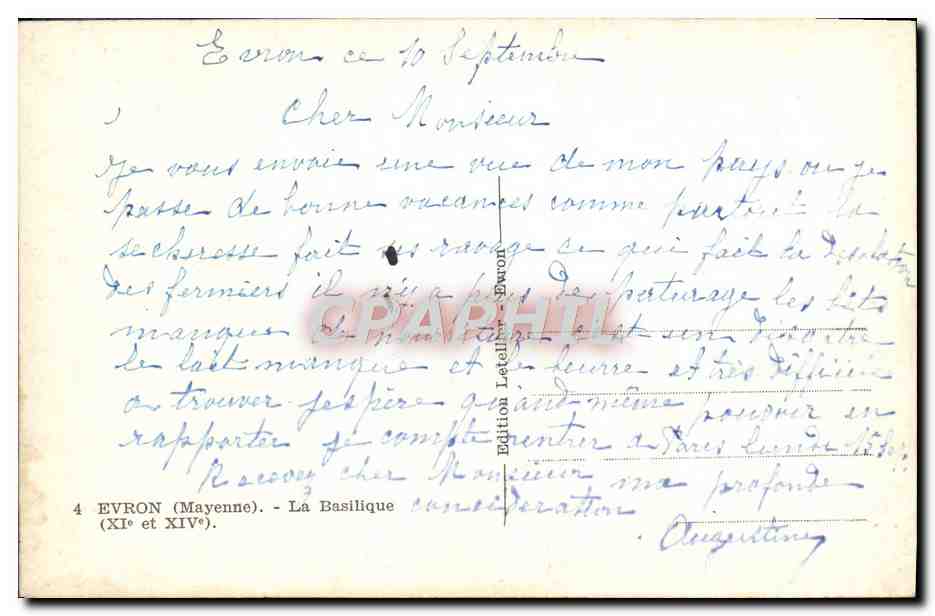 Evron ce 10 Septembre
Cher Monsieur
Je vous envoie une vue de mon pays ou je
passe de bonne vacances comme partout la
secheresse fait ses ravage ce qui fait la desolation
des fermiers il n'y a plus de paturage les bets
manque de nourriture c'est un disastre
le lait manque et le beurre et très difficile
a trouver j'espère quand même pouvoir en
rapporter je compte rentrer a Paris lundi 15
Recevez cher Monsieur ma profonde
consideration
Augustine
4 EVRON (Mayenne). - La Basilique
(XIe et XIVe).
Edition Letellier - Evron
CPAPHIL